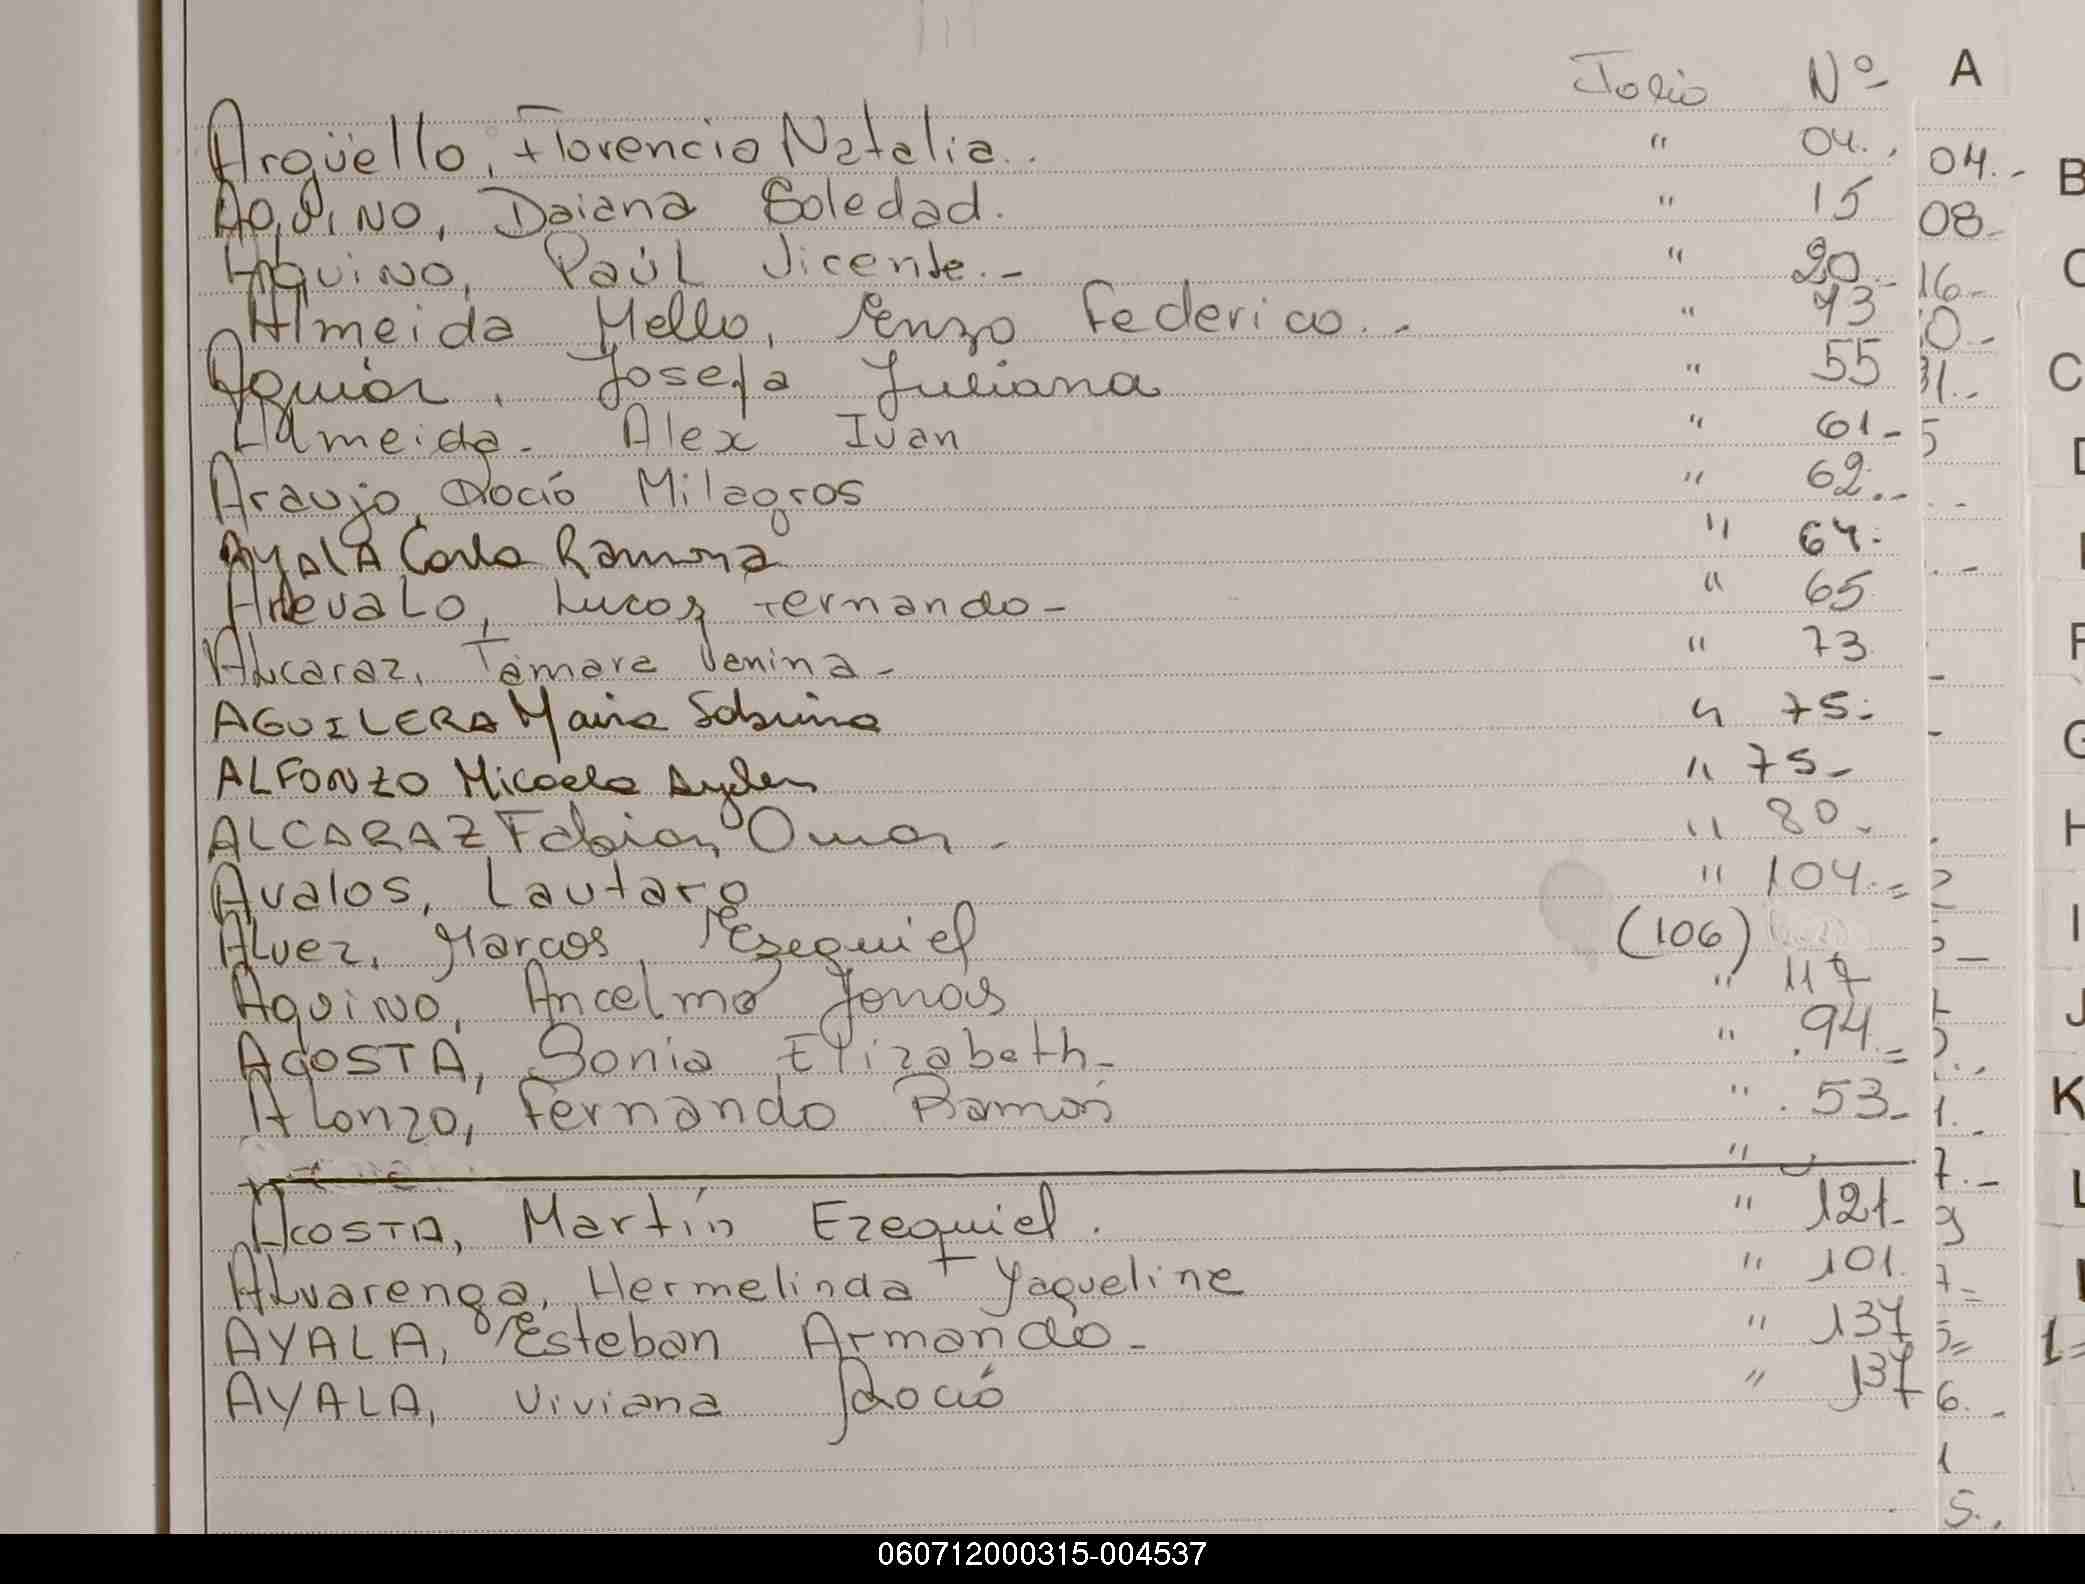 Folio Nº A
Argüello, Florencia Natalia.. " 04.. 04..-
AQUINO, Daiana Soledad. " 15 08- B
Aquino, Paúl Vicente.- " 20.- 16- C
Almeida Mello, Enzo Federico.- " 43 0.-
Aguiar, Josefa Juliana " 55 31.- C
Almeida- Alex Ivan " 61- 5
Araujo, Roció Milagros " 62..-
AYALA Carla Ramona " 64.
Arevalo, Lucas Fernando- " 65
Alcaraz, Tamara Yanina- " 73 F
AGUILERA Maria Sabrina " 75- G
ALFONZO Micaela Aylen " 75-
ALCARAZ Fabian Omar- " 80- H
Avalos, Lautaro " 104.= 2
Alvez, Marcos Ezequiel (106) I
Aquino, Ancelmo Jonas " 117 J
ACOSTA, Sonia Elizabeth- " .94.=
Alonzo, Fernando Ramón " . 53- 1. K
" 7.- L
Acosta, Martín Ezequiel. " 121- 9
Alvarenga, Hermelinda Yaqueline " 101. 7=
AYALA, Esteban Armando- " 137 5= 1=
AYALA, Viviana Roció " 137 6.-
1
5..
060712000315-004537